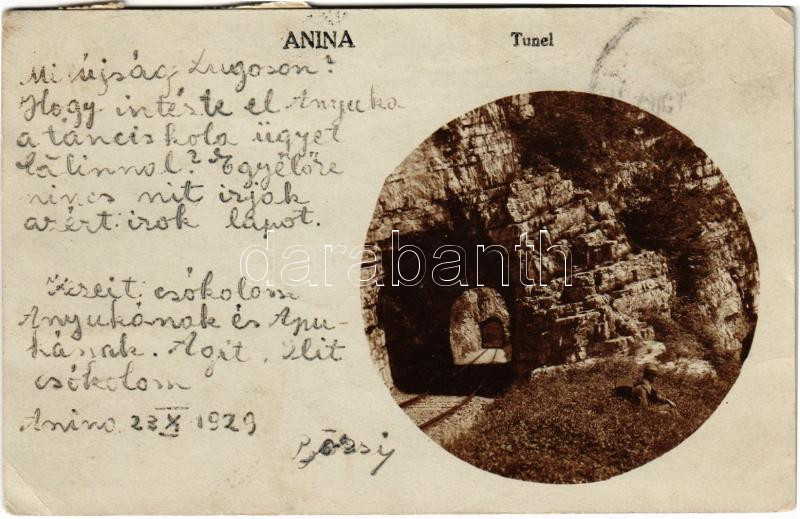 ANINA
Tunel
Mi újság Lugoson?
Hogy intéste el Anyuka
a tánciskola ügyet
Cálinnal? Egyélőre
nincs mit irjak
azért irok lapot.
Kezeit csókolom
Anyukának és Apu-
kának. Ágit, Ilit
csókolom
Anina 23 X 1929
Bözsi
darabanth